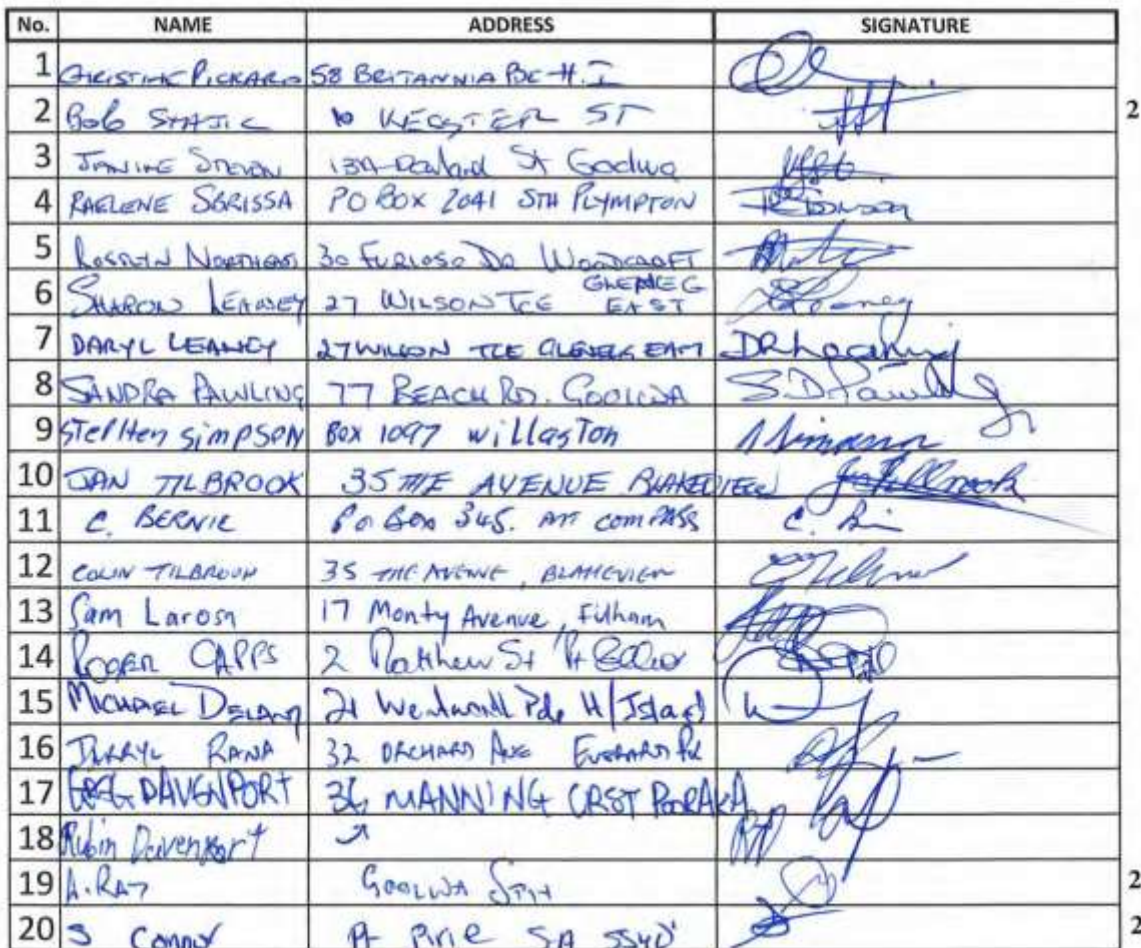 No. NAME ADDRESS SIGNATURE
1 CHRISTINE PICKARD 58 BRITANNIA PDE H.I
2 Bob STATIC 10 ST
3 JANINE 13A St Goolwa
4 RAELENE SGRISSA PO BOX 2041 STH PLYMPTON
5 ROSALYN 30 FURIOSO DR WOODCROFT
6 SHARON LEANEY 27 WILSON TCE GLENELG EAST
7 DARYL LEANEY 27 WILSON TCE GLENELG EAST
8 SANDRA PAWLING 77 BEACH RD. GOOLWA
9 STEPHEN SIMPSON Box 1097 Willaston
10 JAN TILBROOK 35 THE AVENUE BLAKEVIEW
11 C. BERNIE Po Box 345. MT COMPASS
12 COLIN TILBROOK 35 THE AVENUE, BLAKEVIEW
13 Sam Larosa 17 Monty Avenue, Fulham
14 ROGER CAPPS 2 St Pt Elliot
15 MICHAEL 21 Wentworth Pde H/Island
16 RANA 32 ORCHARD AVE EVERARD PK
17 GREG DAVENPORT 36 MANNING CRST POORAKA
18 Robin Davenport
19 A. RAY GOOLWA STH
20 S Connor Pt Pirie SA 5540
2
2
2